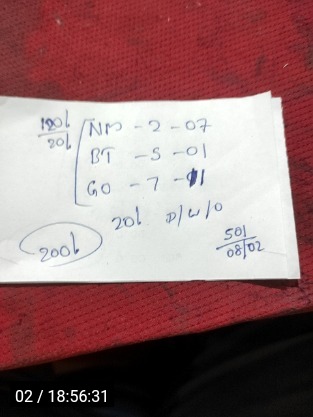 120l
20l
NM - 2 - 07
BT - 5 - 01
GO - 7 - 11
20l D/W/O
200l
50l
08/02
02 / 18:56:31